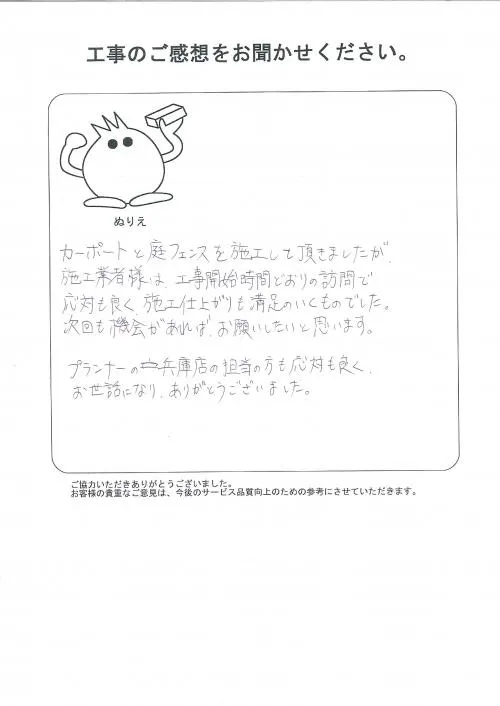 工事のご感想をお聞かせください。
ぬりえ
カーポートと庭フェンスを施工して頂きましたが、
施工業者様は、工事開始時間どおりの訪問で
応対も良く、施工仕上がりも満足のいくものでした。
次回も機会があれば、お願いしたいと思います。
プランナーの兵庫店の担当の方も応対も良く、
お世話になり、ありがとうございました。
ご協力いただきありがとうございました。
お客様の貴重なご意見は、今後のサービス品質向上のための参考にさせていただきます。